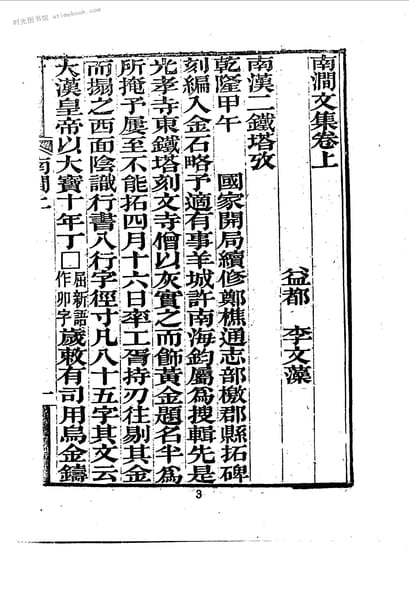 时光图书馆 · atimebook.com
南澗文集卷上
益都 李文藻
南漢二鐵塔攷
乾隆甲午 國家開局續修鄭樵通志部檄郡縣拓碑
刻編入金石略予適有事羊城許南海鈞屬爲搜輯先是
光孝寺東鐵塔刻文寺僧以灰實之而飾黃金題名半爲
所掩予屢至不能拓四月十六日率工胥持刃往剔其金
而搨之西面陰識行書八行字徑寸凡八十五字其文云
大漢皇帝以大寶十年丁□屈新語作卯字歲敕有司用烏金鑄
南澗上
一
3